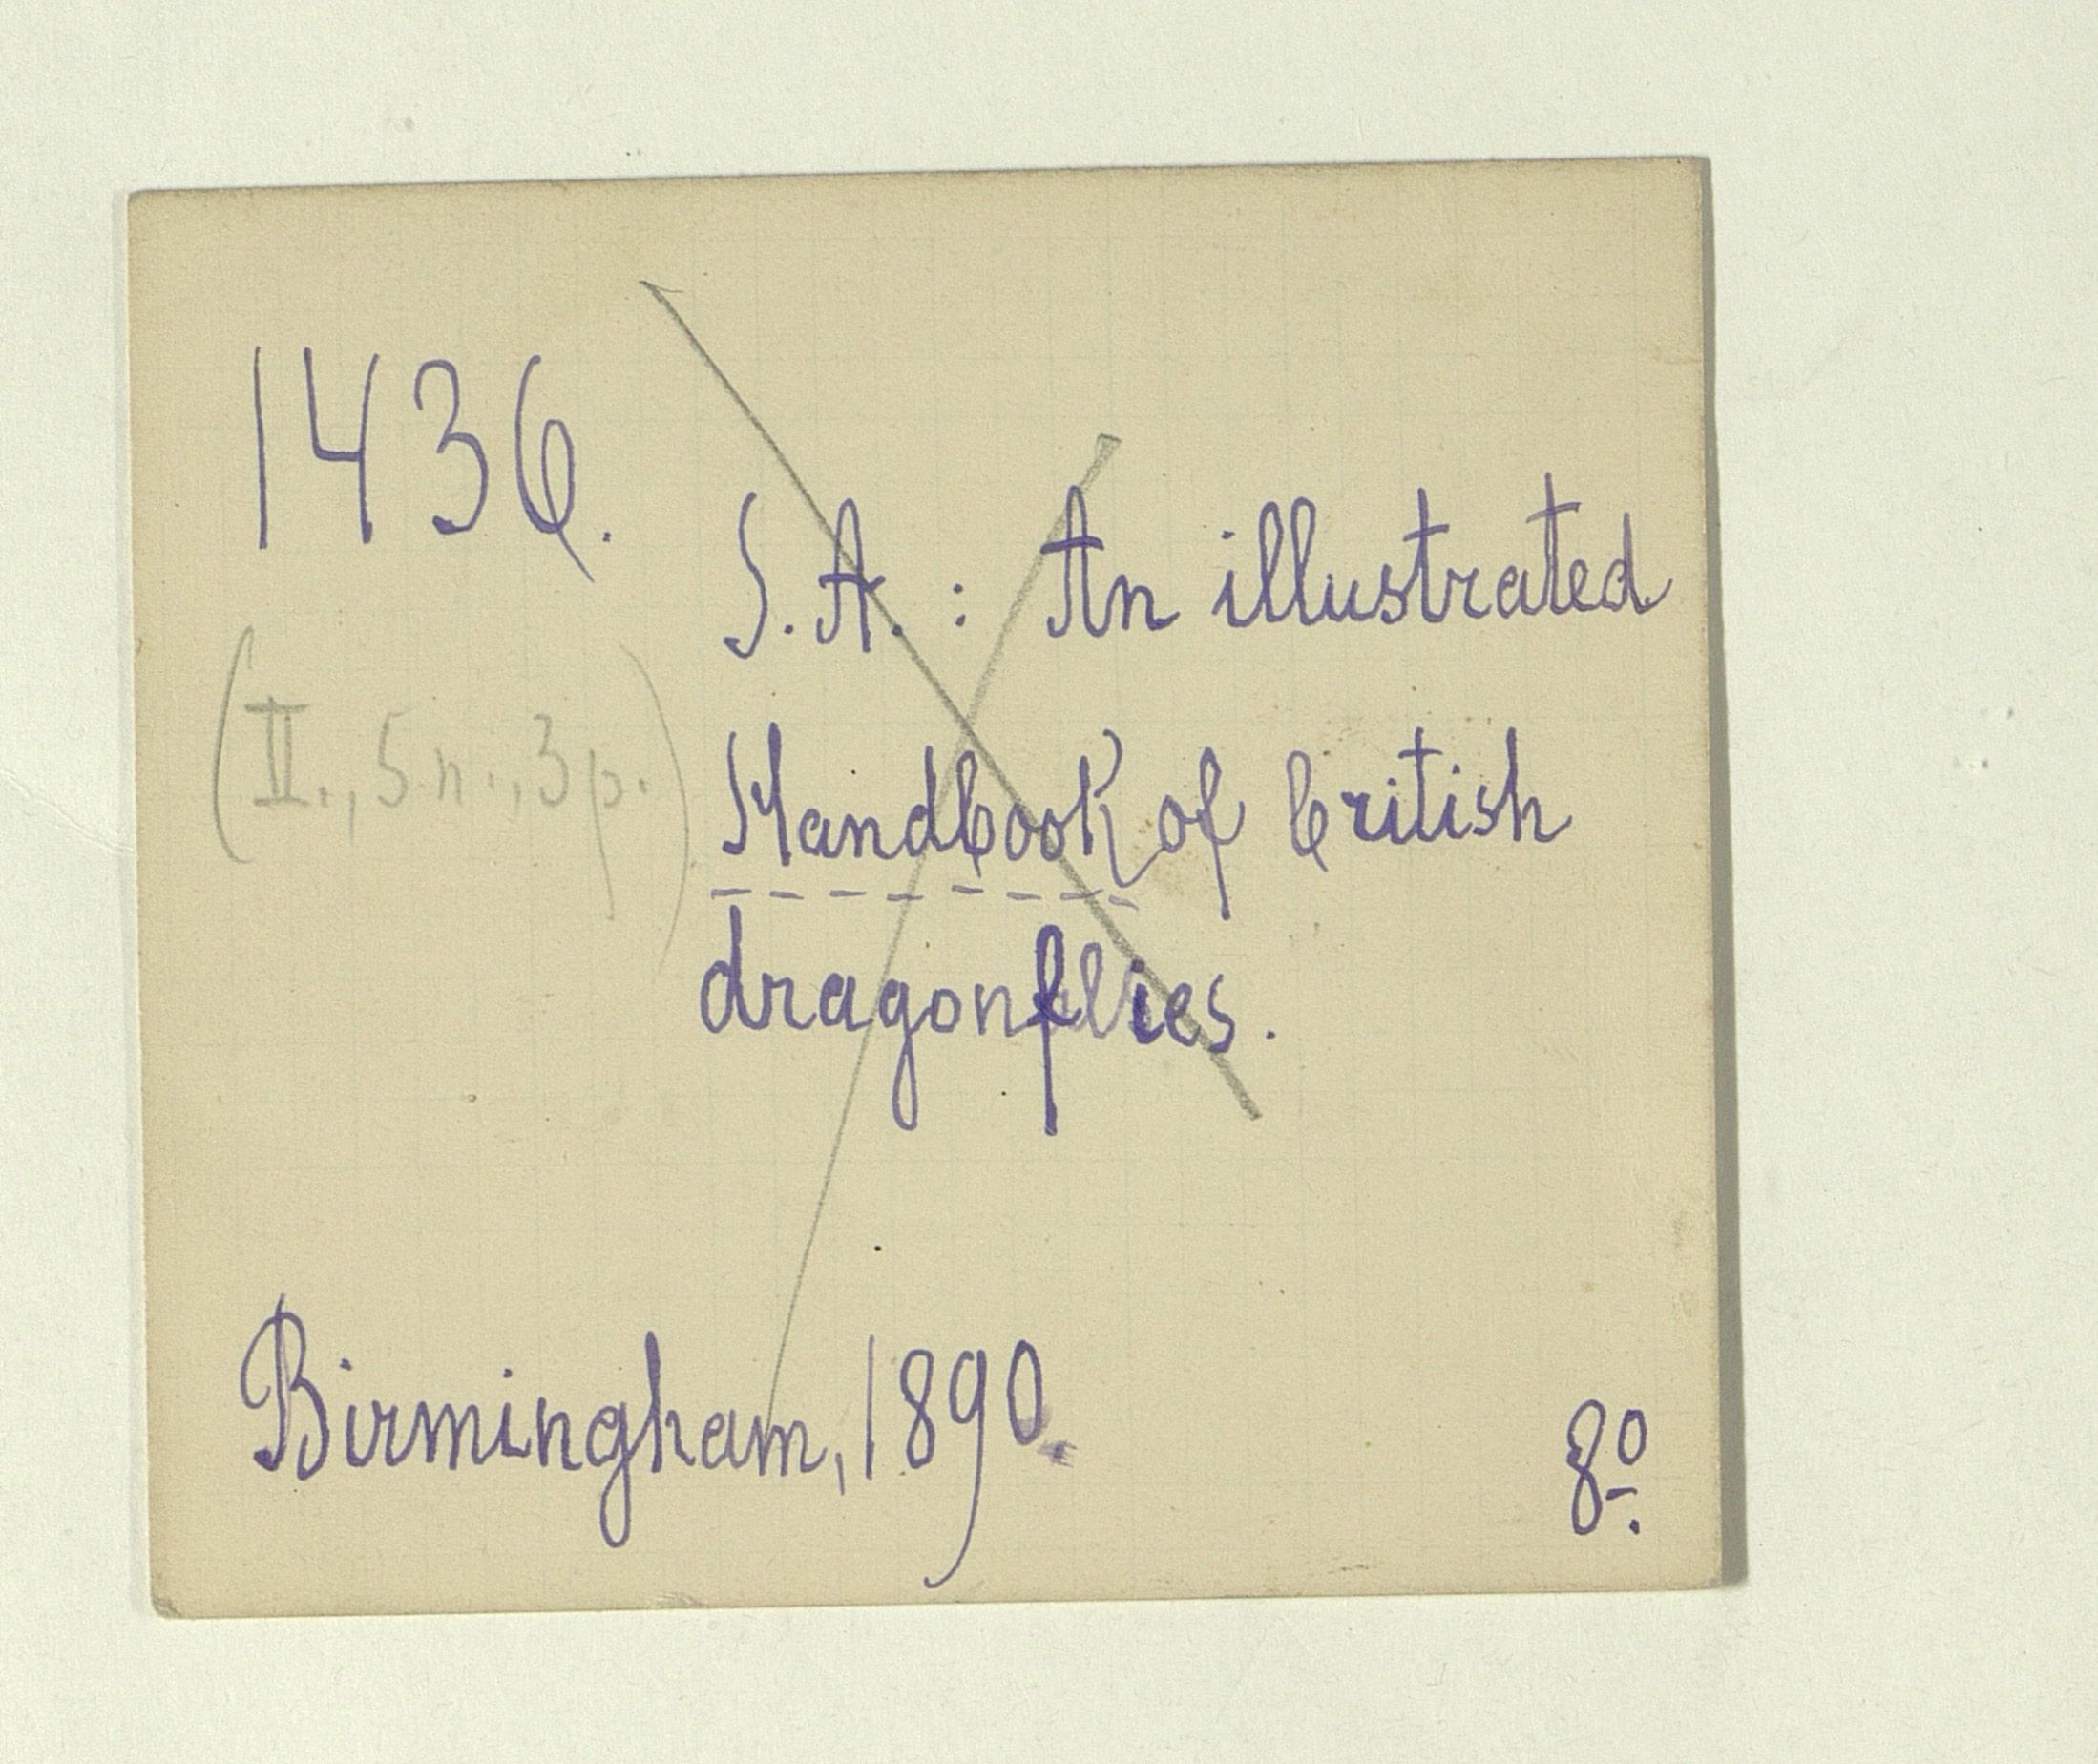 1436.
S. A. : An illustrated
(II., 5.n., 3p.)
Handbook of british
dragonflies.
Birmingham, 1890.
8º.